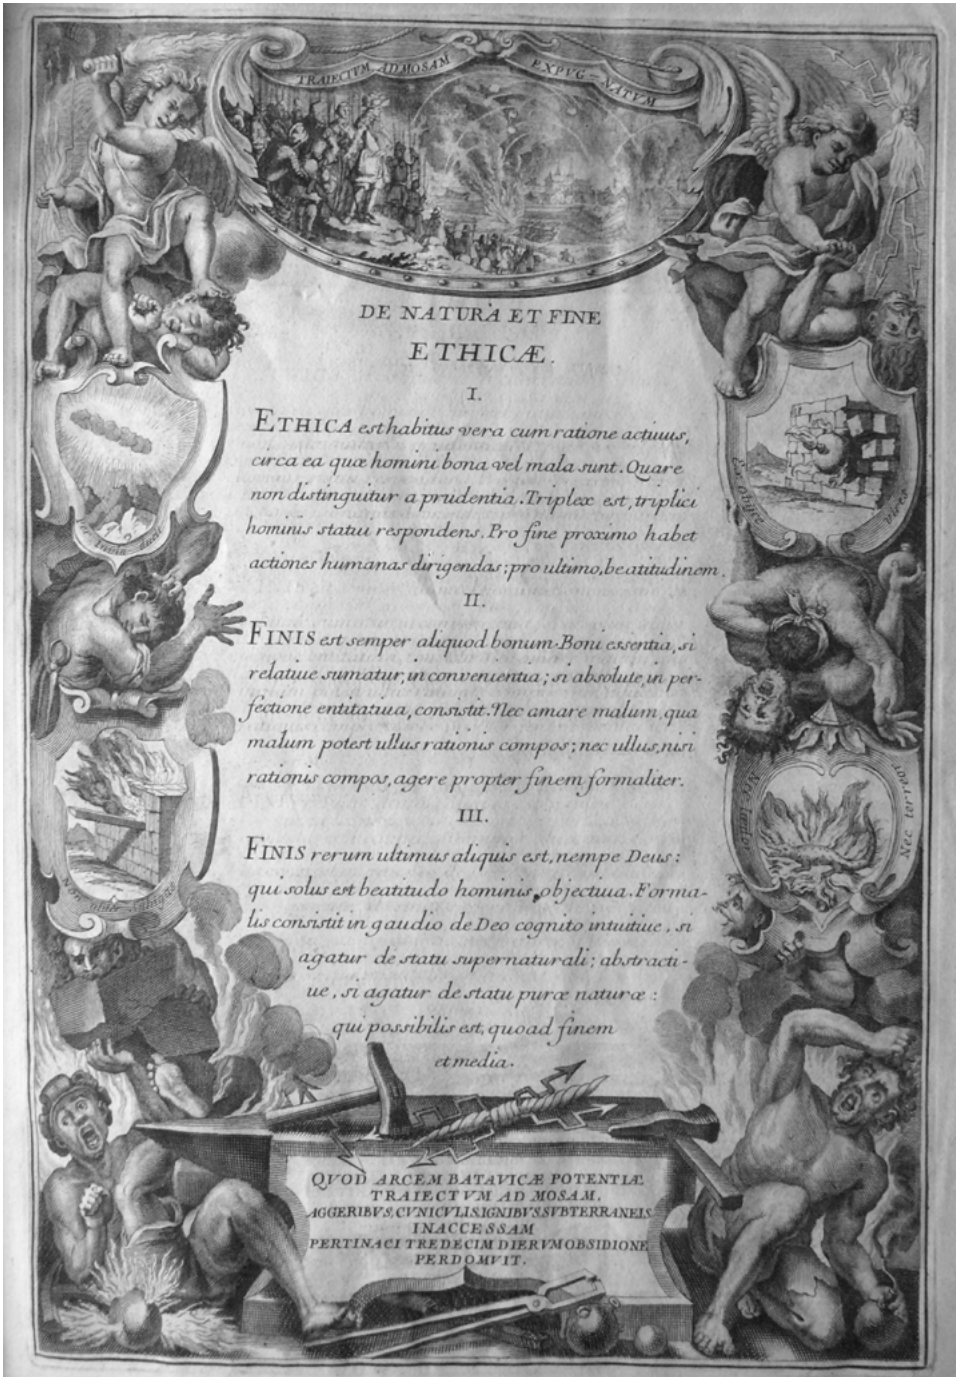 TRAIECTVM AD MOSAM EXPVG-NATVM
DE NATURÂ ET FINE
ETHICÆ.
I.
ETHICA est habitus vera cum ratione actiuus,
circa ea quæ homini bona vel mala sunt. Quare
non distinguitur a prudentia. Triplex est, triplici
hominis statui respondens. Pro fine proximo habet
actiones humanas dirigendas; pro ultimo, beatitudinem.
II.
FINIS est semper aliquod bonum. Boni essentia, si
relatiue sumatur, in convenientia; si absolute, in per-
fectione entitatiua, consistit. Nec amare malum, qua
malum potest ullus rationis compos; nec ullus, nisi
rationis compos, agere propter finem formaliter.
III.
FINIS rerum ultimus aliquis est, nempe Deus:
qui solus est beatitudo hominis, objectiua. Forma-
lis consistit in gaudio de Deo cognito intuitiue, si
agatur de statu supernaturali; abstracti-
ue, si agatur de statu puræ naturæ:
qui possibilis est, quoad finem
et media.
Ex obice vires
Nec lædor Nec terreor
QVOD ARCEM BATAVICÆ POTENTIÆ
TRAIECTVM AD MOSAM,
AGGERIBVS, CVNICVLIS, IGNIBVS SVBTERRANEIS
INACCESSAM
PERTINACI TREDECIM DIERVM OBSIDIONE
PERDOMVIT.